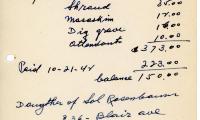 Shroud 35.00
Maraskim 12.00
Dig grave 18.00
Attendants 10.00
$373.00
Paid 10-21-44 223.00
balance 150.00
Daughter of Sol Rosenbaum
836 - Blair ave